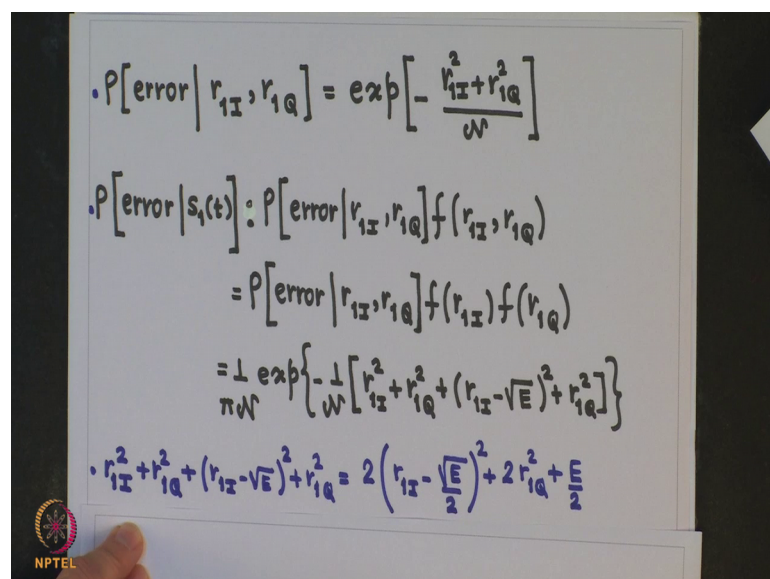 .P[error| r₁I, r₁Q] = exp[- (r₁I² + r₁Q²)/𝒩]
.P[error|s₁(t)]: P[error|r₁I, r₁Q]f(r₁I, r₁Q)
= P[error|r₁I, r₁Q]f(r₁I)f(r₁Q)
= 1/π𝒩 exp{-1/𝒩[r₁I² + r₁Q² + (r₁I - √E)² + r₁Q²]}
. r₁I² + r₁Q² + (r₁I - √E)² + r₁Q² = 2(r₁I - √E/2)² + 2r₁Q² + E/2
NPTEL